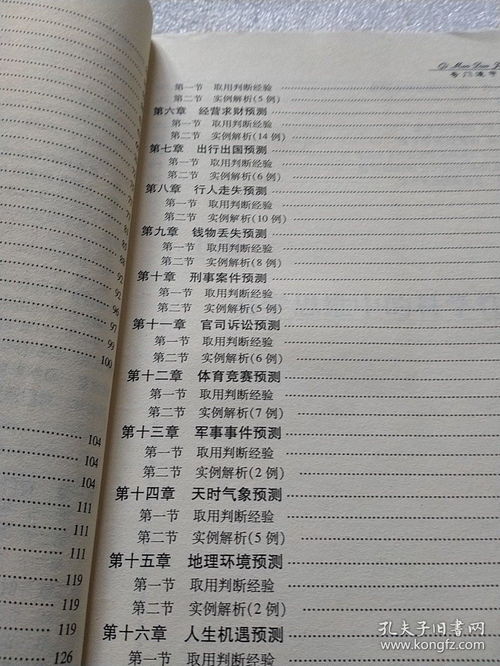 Qi Men Dun J
第一节 取用判断经验
第二节 实例解析(5例)
第六章 经营求财预测
第一节 取用判断经验
第二节 实例解析(14例)
第七章 出行出国预测
第一节 取用判断经验
第二节 实例解析(6例)
第八章 行人走失预测
第一节 取用判断经验
第二节 实例解析(10例)
第九章 钱物丢失预测
第一节 取用判断经验
第二节 实例解析(8例)
第十章 刑事案件预测
第一节 取用判断经验
第二节 实例解析(5例)
第十一章 官司诉讼预测
第一节 取用判断经验
第二节 实例解析(6例)
第十二章 体育竞赛预测
第一节 取用判断经验
第二节 实例解析(7例)
第十三章 军事事件预测
第一节 取用判断经验
第二节 实例解析(2例)
第十四章 天时气象预测
第一节 取用判断经验
第二节 实例解析(5例)
第十五章 地理环境预测
第一节 取用判断经验
第二节 实例解析(2例)
第十六章 人生机遇预测
第一节 取用判断经验
92
96
97
99
100
104
104
104
111
111
111
119
119
119
126
孔夫子旧书网
www.kongfz.com